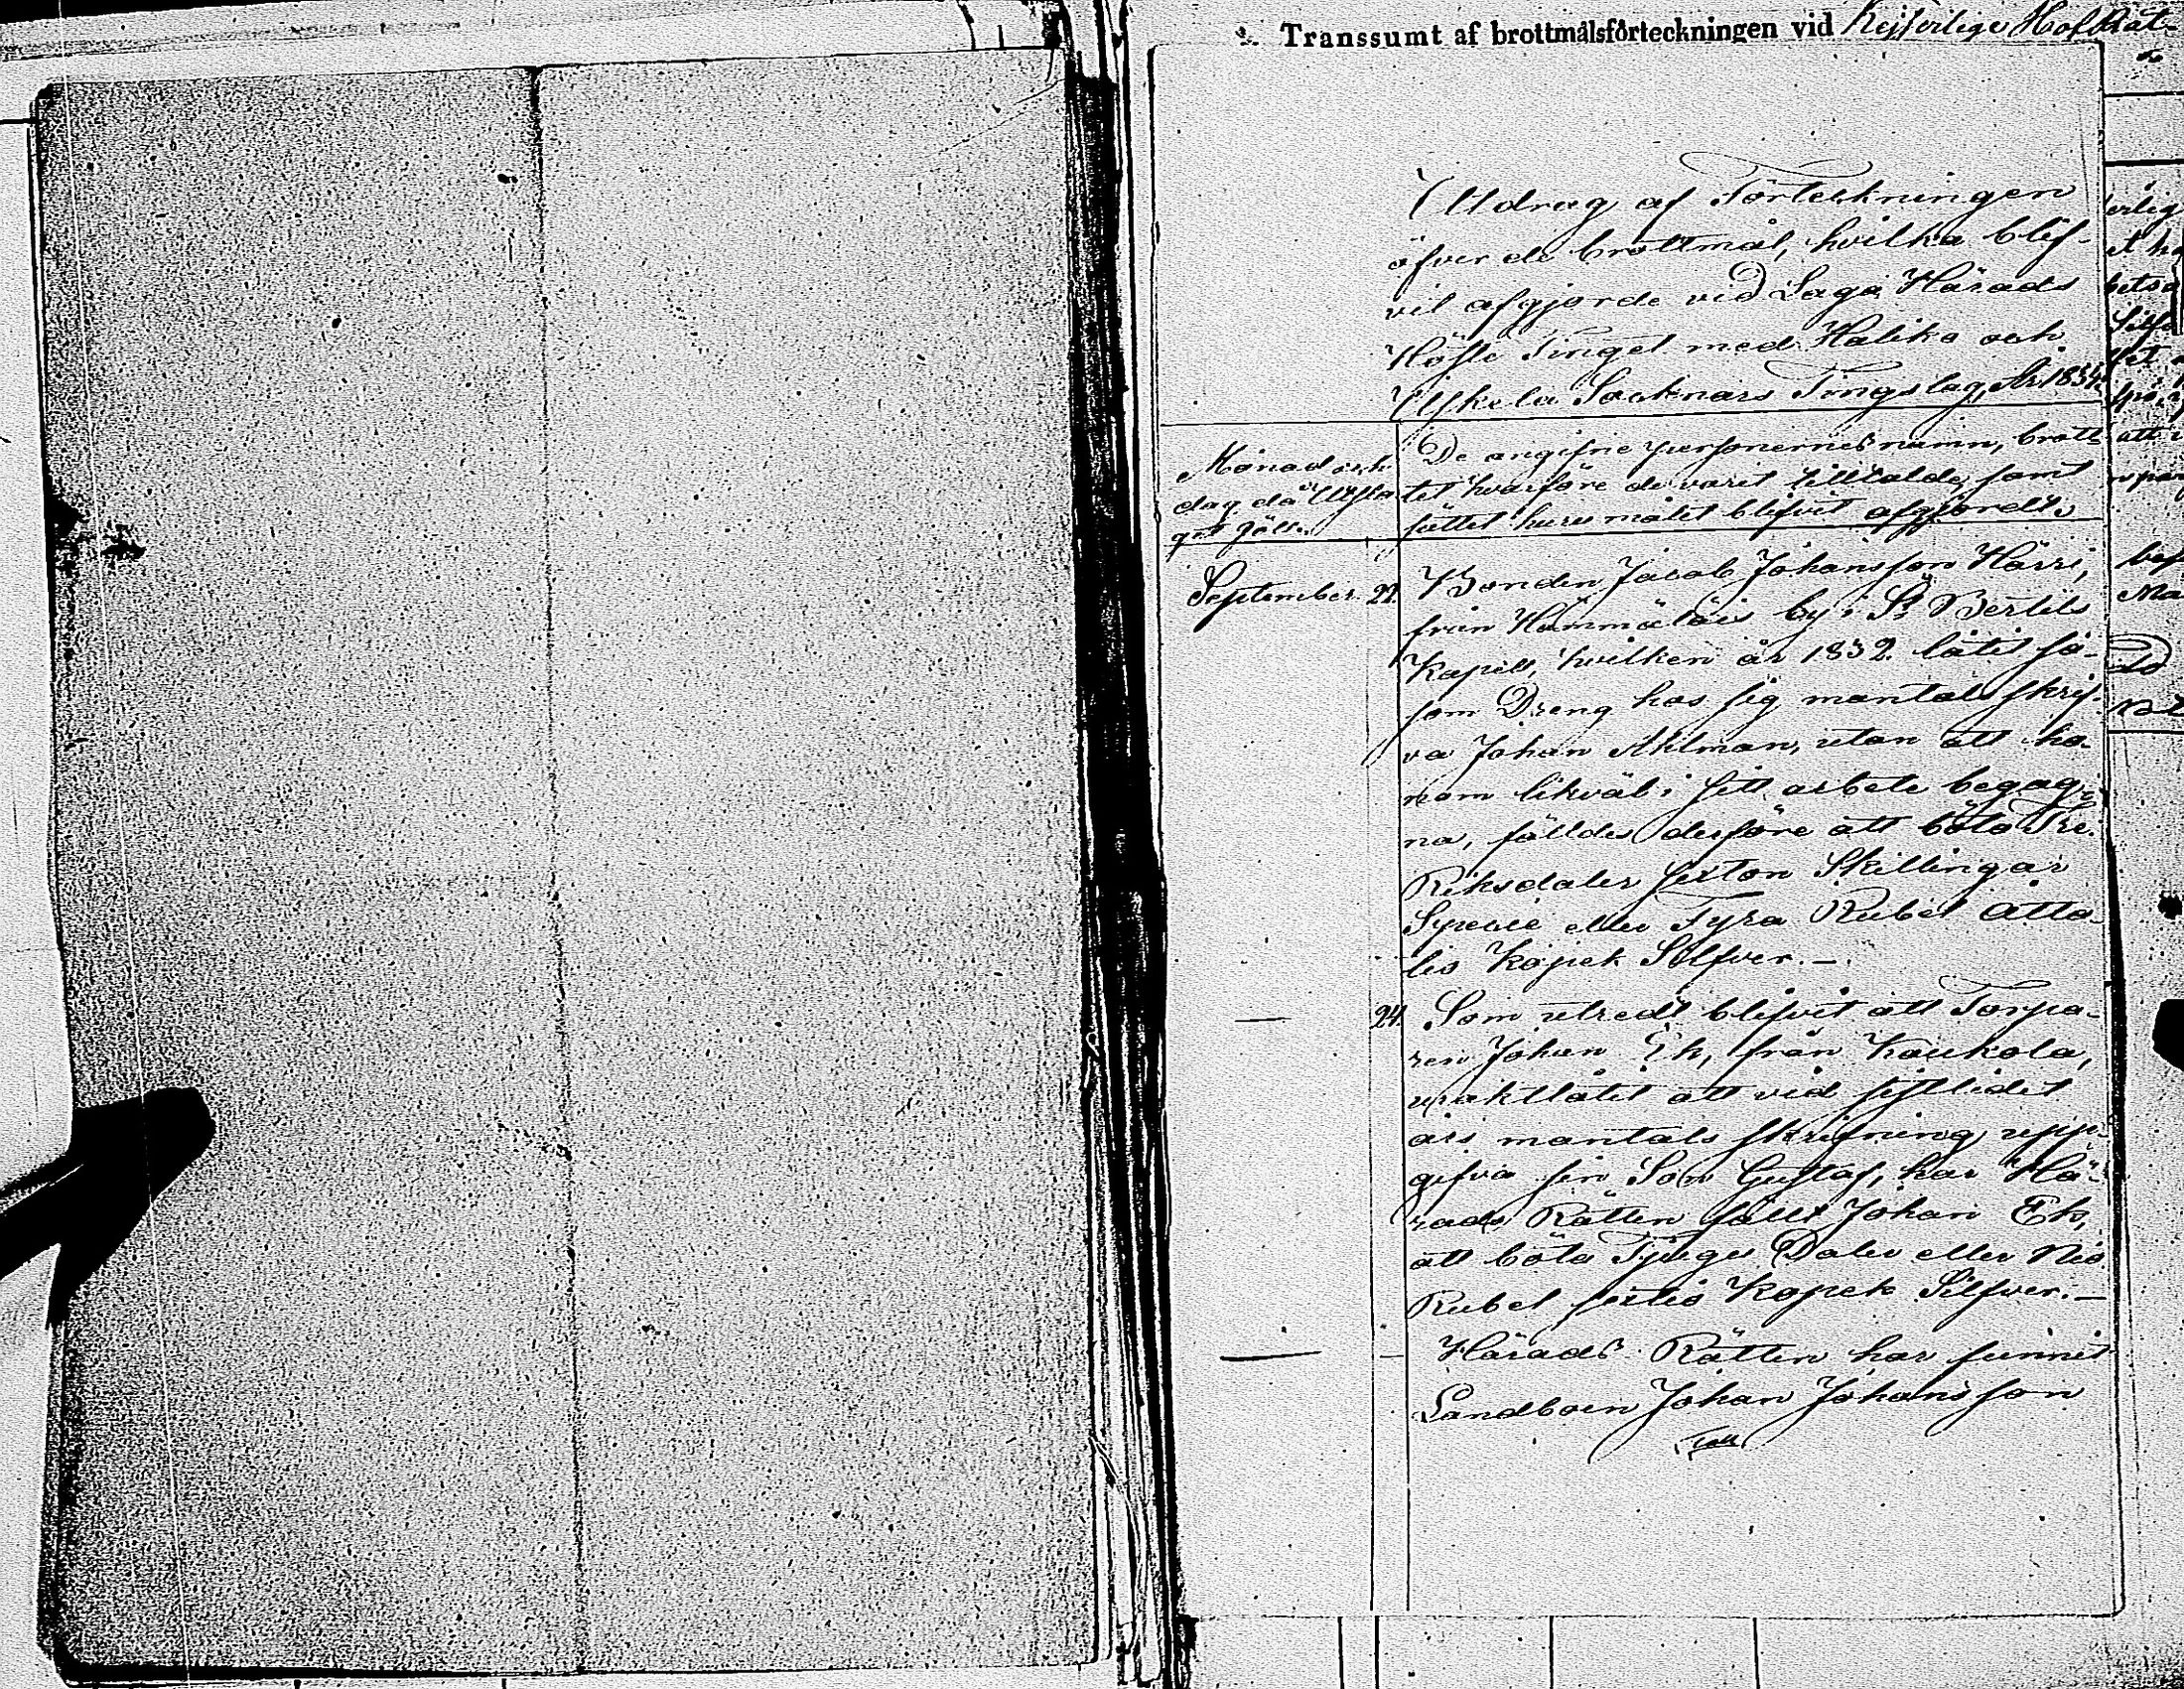 Transsumt af brottmålsförteckningen vid Kejserlige Hofrät
Utdrag af Förteckningen
öfver de brottmål, hvilka blif-
vit afgjorde vid Laga Härads
Höste Tinget med Haliko och
Uskela Socknars Tingslag, År 1834.
Månad och
dag då Utsla
get föll.
De angifne personernes namn, brott
tet hvarföre de varit tilltalde, samt
sättet huru målet blifvit afgjordt.
September 22.
Bonden Jacob Johansson Härri,
från Hämmäläis by i St Bertils
Kapell, hvilken år 1832. låtit så-
som Dreng hos sig mantalsskrif-
va Johan Ahlman, utan att ho-
nom likväl i sitt arbete begag-
na, fälldes derföre att böta Tre
Riksdaler sexton Skillingar
Specie eller Fyra Rubel åtta-
tio Kopek Silfver. —
— 24.
Som utredt blifvit att Torpa-
ren Johan Ek, från Kaukola,
uraktlåtit att vid sistledet
års mantalsskrifning upp-
gifva sin Son Gustaf, har Hä-
rads Rätten fällt Johan Ek,
att böta Tjuge Daler eller Nio
Rubel sextio Kopek Silfver. —
— —
Härads Rätten har funnit
Landboen Johan Johansson